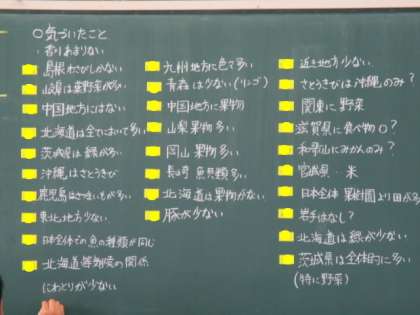 ○気づいたこと
・香りあまりない
島根わさびしかない
岐阜は果野菜が多い
中国地方にはない
北海道は全てにおいて多い
茨城県は銀が多い
沖縄はさとうきび
鹿児島はさつまいもが多い
東北地方少ない
日本全体での魚の種類が同じ
北海道等気候の関係
にわとりが少ない
九州地方に色で多い
青森は少ない(リンゴ)
中国地方に果物
山梨果物多い
岡山果物多い
長崎 魚貝類多い
北海道は果物がない
豚が少ない
近き地方少ない
さとうきびは沖縄のみ?
関東に野菜
滋賀県に食べ物○?
和歌山にみかんのみ?
宮城県・米
日本全体 果樹園より田が多
岩手はなし?
北海道は銀が少ない
茨城県は全体的に多い
(特に野菜)